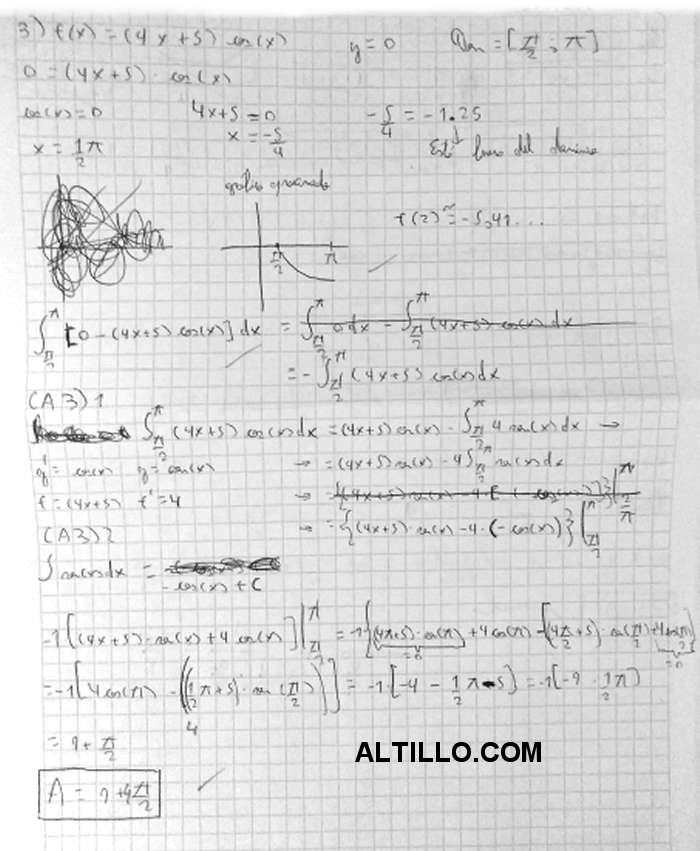 3) f(x) = (4x+5) cos(x) y = 0 Dom = [π/2 ; π]
0 = (4x+5) · cos(x)
cos(x) = 0 4x+5 = 0 -5/4 = -1.25
x = 1/2 π x = -5/4 Está fuera del dominio
gráfico aproximado
f(2) ≈ -5,41...
π/2 π
∫_{π/2}^{π} [0 - (4x+5) cos(x)] dx = ∫_{π/2}^{π} 0 dx - ∫_{π/2}^{π} (4x+5) cos(x) dx
= - ∫_{π/2}^{π} (4x+5) cos(x) dx
(A3) 1
∫_{π/2}^{π} (4x+5) cos(x) dx = (4x+5) sen(x) - ∫_{π/2}^{π} 4 sen(x) dx →
g' = cos(x) g = sen(x) → = (4x+5) sen(x) - 4 ∫_{π/2}^{π} sen(x) dx
f = (4x+5) f' = 4
(A3) 2 → = {(4x+5) · sen(x) - 4 · (-cos(x))} |_{π/2}^{π}
∫ sen(x) dx =
-cos(x) + C
-1 [(4x+5) · sen(x) + 4 cos(x)] |_{π/2}^{π} = -1 [(4π+5) · sen(π) + 4 cos(π) - [(4π/2 + 5) · sen(π/2) + 4 cos(π/2)]
= 0 = 0
= -1 [4 cos(π) - ((1/2 π + 5) · sen(π/2))] = -1 · [-4 - 1/2 π - 5] = -1 [-9 · 1/2 π]
4
= 9 + π/2
ALTILLO.COM
A = 9 + 4π/2